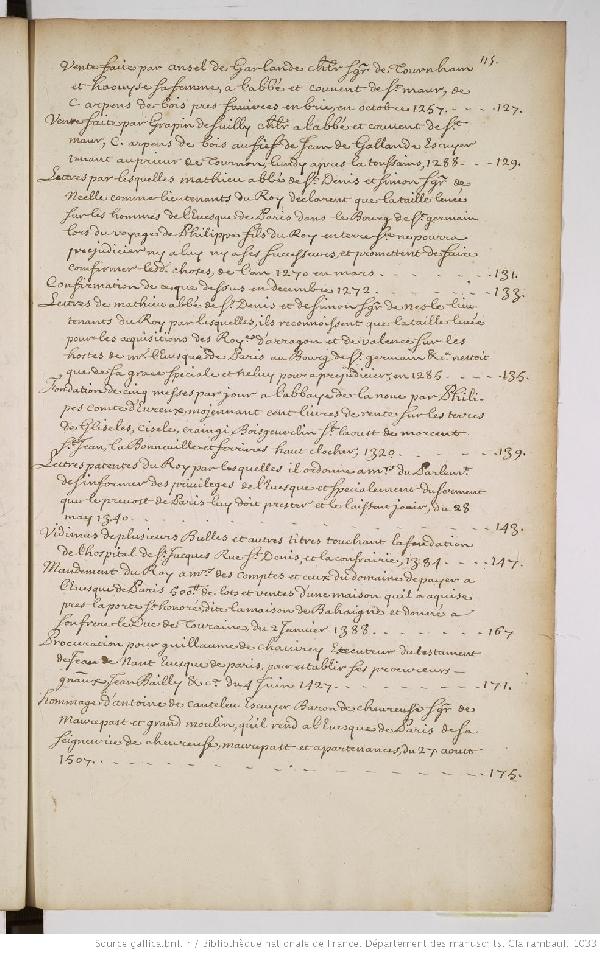 115.
Vente faite par ansel de Garlande chlr sgr de Tournham
et haouyse sa femme, a labbé et couvent de st. maur, de
C. arpens de bois pres fauieres en brie, en octobre 1257. - - - 127.
Vente faite par Grapin de Suilly chlr a labbé et couvent de st.
maur, C. arpens de bois au fief de Jean de Gallande Escuyer
tenant au prieur de Tournon, lundy apres la toussains, 1288 - - 129.
Lettres par lesquelles mathieu abbé de st. Denis et simon sgr de
Neelle comme lieutenants du Roy declarent que la taille levée
sur les hommes de l'Euesque de Paris dans le Bourg de st. germain
lors du voyage de Philippe fils du Roy en terre ste ne pourra
prejudicier ny a luy ny a ses successeurs, et promettent de faire
confirmer lesd. choses, de l'an 1270 en mars - - - - 131.
Confirmation de ce que dessus en decembre 1272. - - - - 133.
Lettres de mathieu abbé de st. Denis et de simon sgr de nesle lieu-
tenants du Roy par lesquelles, ils reconnoissent que la taille levée
pour les acquisitions des Roy.es d'arragon et de valence sur les
hostes de mr. l'Euesque de Paris au Bourg de st. germain &c. n'estoit
que de sa grace speciale et ne luy pourra prejudicier, en 1285 - - - - 135.
Fondation de cinq messes par jour a l'abbaye de la noue par Phili-
pes comte d'Eureux, moyennant cent livres de rente sur les terres
de Gliseles, Cierle, craingi Boisgencelin st. laoust de morcent
St. Jean, la Bonneuille et ferrires haut clocher, 1320. - - - - 139.
Lettres patentes du Roy par lesquelles il ordonne a mrs. du Parlemt.
de s'informer des privileges de l'Euesque et specialement du serment
que le prevost de Paris luy doit prester et le laissent jouir, du 28
may 1340. - - - - 143.
Vidimus de plusieurs Bulles et autres titres touchant la fondation
de l'hospital de st. Jacques Rue st. Denis, et la confrairie, 1384 - - - - 147.
Mandement du Roy a mrs. des comptes et ceux du domaine de payer a
l'Euesque de Paris 500tt. de lots et ventes d'une maison qu'il a aquise
pres la porte st. honoré dite la maison de Bahaigne et donnée a
son frere le Duc de Touraine, du 2 Januier 1388. - - - - 167.
Procuration pour guillaume de chauirey Executeur du testament
de Jean de Nant Euesque de paris, pour establir ses procureurs
gnaux Jean Bailly &c. du 4 Juin 1427. - - - - 171.
hommage d'antoine de Canteleu Escuyer Baron de cheureuse sgr de
Maurepast et grand moulin, qu'il rend a l'Euesque de Paris de sa
seigneurie de cheureuse, maurepast et apartenances, du 27 aoust
1507. - - - - 175.
Source gallica.bnf.fr / Bibliothèque nationale de France. Département des manuscrits. Clairambault 1033